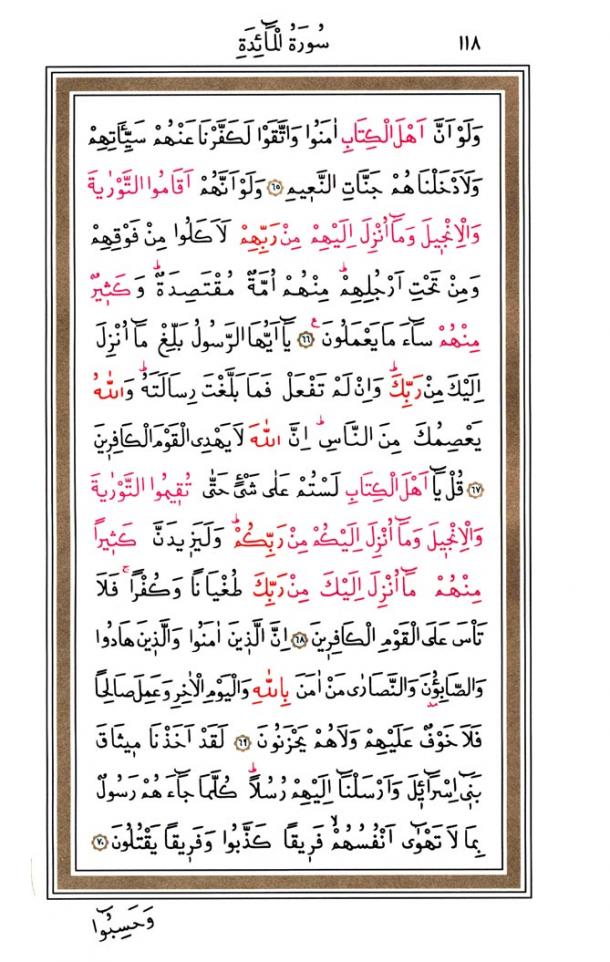 ١١٨ سُورَةُ الْمَٓائِدَةِ
وَلَوْ اَنَّ اَهْلَ الْكِتَابِ اٰمَنُوا وَاتَّقَوْا لَكَفَّرْنَا عَنْهُمْ سَيِّـَٔاتِهِمْ
وَلَاَدْخَلْنَاهُمْ جَنَّاتِ النَّعٖيمِ ﴿٦٥﴾ وَلَوْ اَنَّهُمْ اَقَامُوا التَّوْرٰيةَ
وَالْاِنْجٖيلَ وَمَٓا اُنْزِلَ اِلَيْهِمْ مِنْ رَبِّهِمْ لَاَكَلُوا مِنْ فَوْقِهِمْ
وَمِنْ تَحْتِ اَرْجُلِهِمْۜ مِنْهُمْ اُمَّةٌ مُقْتَصِدَةٌۜ وَكَثٖيرٌ
مِنْهُمْ سَٓاءَ مَا يَعْمَلُونَ۟ ﴿٦٦﴾ يَٓا اَيُّهَا الرَّسُولُ بَلِّغْ مَٓا اُنْزِلَ
اِلَيْكَ مِنْ رَبِّكَۜ وَاِنْ لَمْ تَفْعَلْ فَمَا بَلَّغْتَ رِسَالَتَهُۜ وَاللّٰهُ
يَعْصِمُكَ مِنَ النَّاسِۜ اِنَّ اللّٰهَ لَا يَهْدِي الْقَوْمَ الْكَافِرٖينَ
﴿٦٧﴾ قُلْ يَٓا اَهْلَ الْكِتَابِ لَسْتُمْ عَلٰى شَيْءٍ حَتّٰى تُقٖيمُوا التَّوْرٰيةَ
وَالْاِنْجٖيلَ وَمَٓا اُنْزِلَ اِلَيْكُمْ مِنْ رَبِّكُمْۜ وَلَيَزٖيدَنَّ كَثٖيرًا
مِنْهُمْ مَٓا اُنْزِلَ اِلَيْكَ مِنْ رَبِّكَ طُغْيَانًا وَكُفْرًاۚ فَلَا
تَأْسَ عَلَى الْقَوْمِ الْكَافِرٖينَ ﴿٦٨﴾ اِنَّ الَّذٖينَ اٰمَنُوا وَالَّذٖينَ هَادُوا
وَالصَّابِؤُ۫نَ وَالنَّصَارٰى مَنْ اٰمَنَ بِاللّٰهِ وَالْيَوْمِ الْاٰخِرِ وَعَمِلَ صَالِحًا
فَلَا خَوْفٌ عَلَيْهِمْ وَلَا هُمْ يَحْزَنُونَ ﴿٦٩﴾ لَقَدْ اَخَذْنَا مٖيثَاقَ
بَنٖٓي اِسْرَٓائٖيلَ وَاَرْسَلْنَٓا اِلَيْهِمْ رُسُلًاۜ كُلَّمَا جَٓاءَهُمْ رَسُولٌ
بِمَا لَا تَهْوٰٓى اَنْفُسُهُمْۙ فَرٖيقًا كَذَّبُوا وَفَرٖيقًا يَقْتُلُونَ ﴿٧٠﴾
وَحَسِبُٓوا